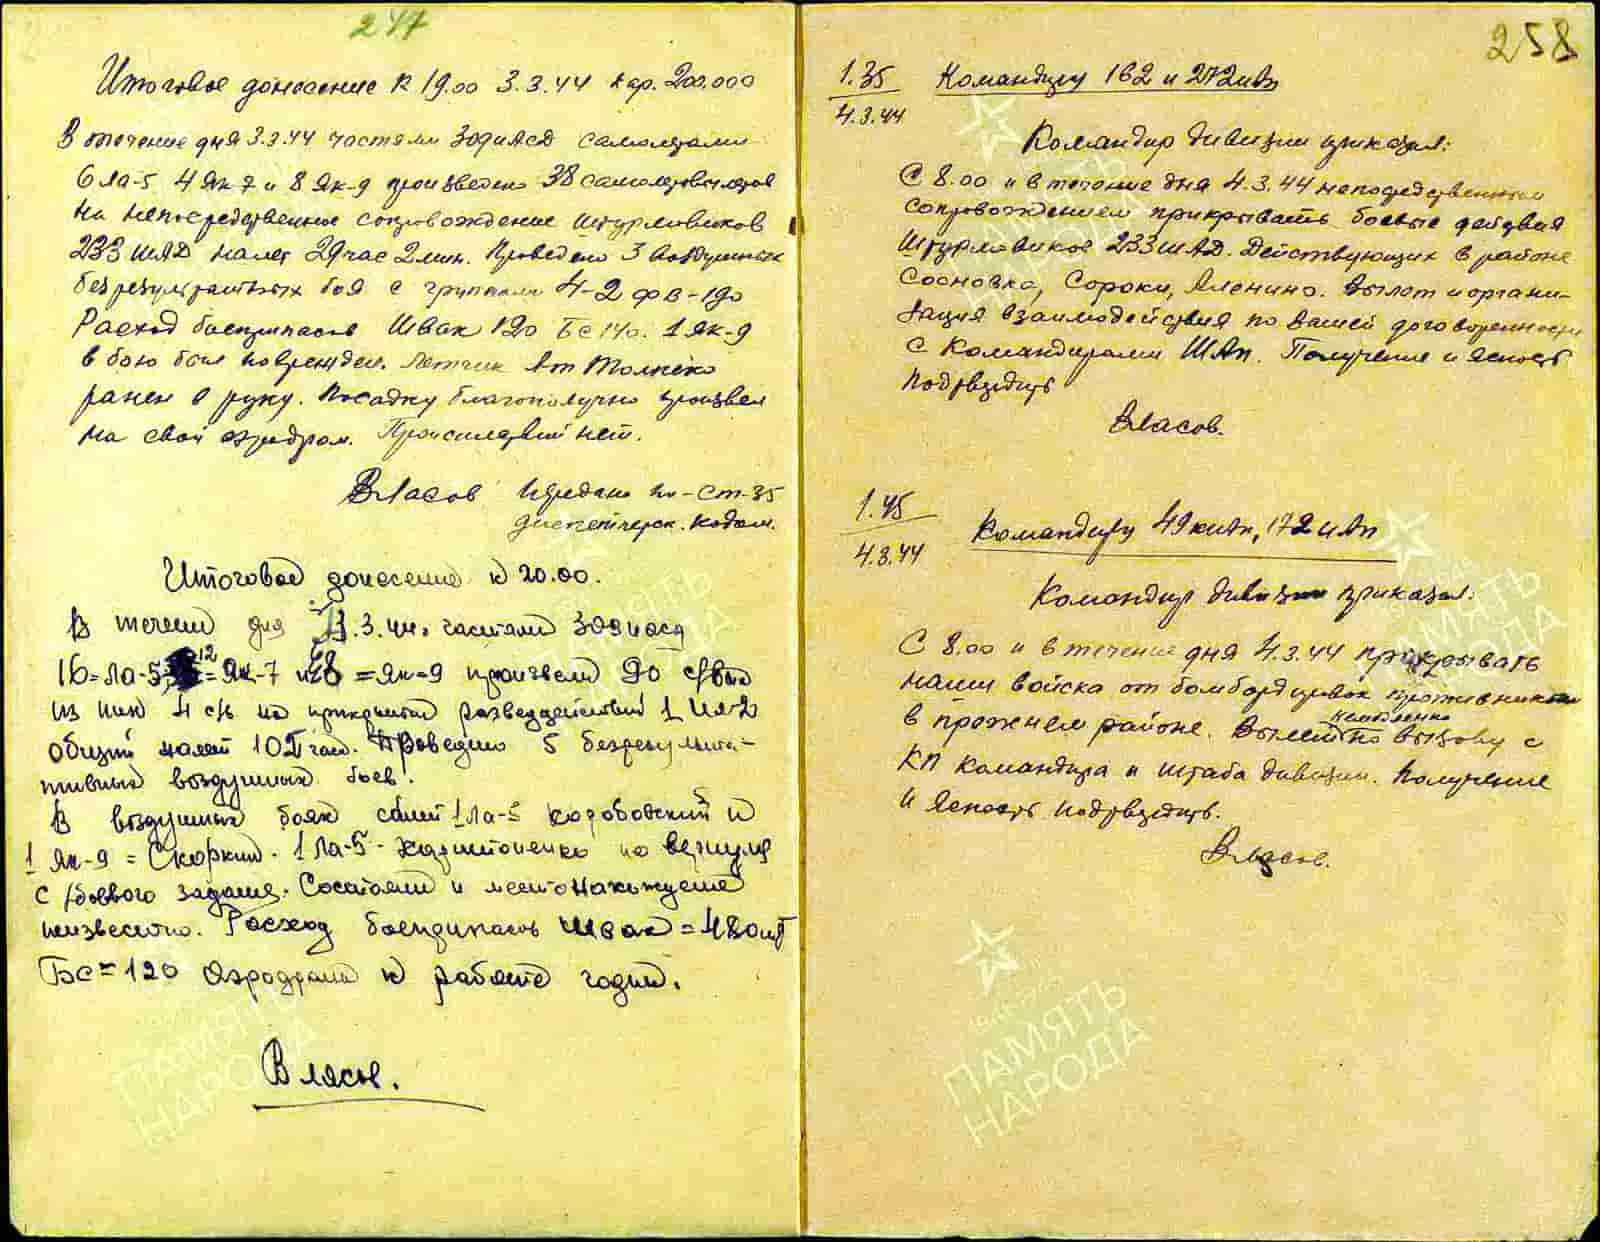 247
Итоговое донесение к 19.00 3.3.44 кар. 200.000
В течение дня 3.3.44 частями 309 иАсд самолетами
6 ла-5 4 Як-7 и 8 Як-9 произведено 38 самолетовылетов
на непосредственное сопровождение штурмовиков
233 шАД налет 29 час 2 мин. Проведено 3 воздушных
безрезультатных боя с группами 4-2 фв-190
Расход боеприпасов Швак 190 Бс 140. 1 як-9
в бою был поврежден. Летчик
ранен в руку. Посадку благополучно произвел
на свой аэродром. Происшедствий нет.
Власов Передано
диспетчерск. кодом.
Итоговое донесение к 20.00.
В течении дня 3.3.44г частями 309 иасд
16=ла-5 12=Як-7 и 28=як-9 произвели 90 с/выл
из них 4 с/в на прикрытие разведдействий 1 Ил-2
общий налет час. Проведено 5 безрезульта-
тивных воздушных боев.
В воздушных боях сбит 1 ла-5 Коробовский и
1 як-9 = Скоркин. 1 Ла-5 - Харитоненко не вернулся
с боевого задания. Состояние и место нахождение
неизвестно. Расход боеприпасов Швак = 480 шт
Бс = 120 Аэродромы к работе годны.
Власов.
258
1.35
4.3.44
Командиру 162 и 272 иАп
Командир дивизии приказал:
С 8.00 и в течение дня 4.3.44 непосредственным
сопровождением прикрывать боевые действия
Штурмовиков 233 шАД. Действующих в районе
Сосновка, Сороки, Аленино. Вылет и органи-
зация взаимодействия по вашей договоренности
с командирами ШАп. Получение и ясность
подтвердить
Власов.
1.45
4.3.44
Командиру 49 киАп, 172 иАп
Командир дивизии приказал:
С 8.00 и в течение дня 4.3.44 прикрывать
наши войска от бомбардировок противником
в прежнем районе. Вылет немедленно по вызову с
КП командира и штаба дивизии. Получение
и ясность подтвердить.
Власов.
ПАМЯТЬ
НАРОДА
ПАМЯТЬ
НАРОДА
ПАМЯТЬ
НАРОДА
ПАМЯТЬ
НАРОДА